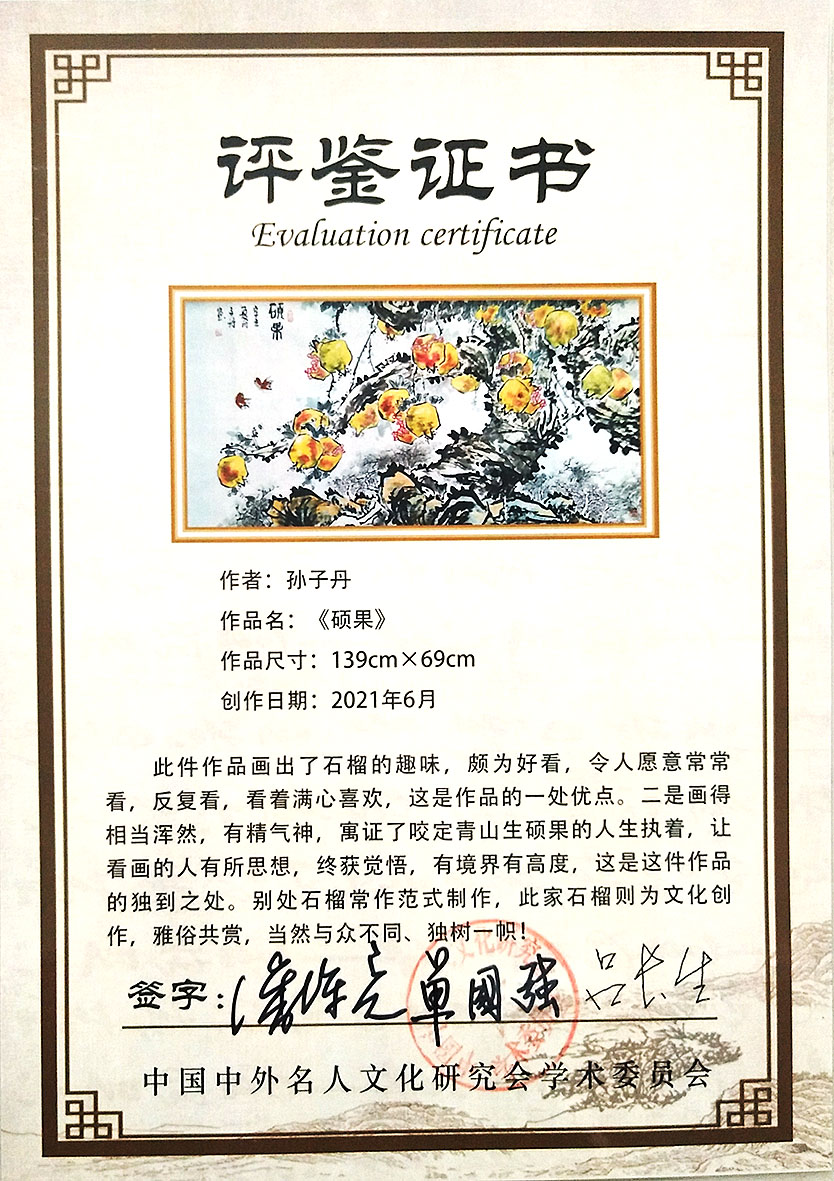 评鉴证书
Evaluation certificate
硕果
作者：孙子丹
作品名：《硕果》
作品尺寸：139cm×69cm
创作日期：2021年6月
此件作品画出了石榴的趣味，颇为好看，令人愿意常常
看，反复看，看着满心喜欢，这是作品的一处优点。二是画得
相当浑然，有精气神，寓证了咬定青山生硕果的人生执着，让
看画的人有所思想，终获觉悟，有境界有高度，这是这件作品
的独到之处。别处石榴常作范式制作，此家石榴则为文化创
作，雅俗共赏，当然与众不同、独树一帜！
签字：
单国强
吕长生
中国中外名人文化研究会学术委员会